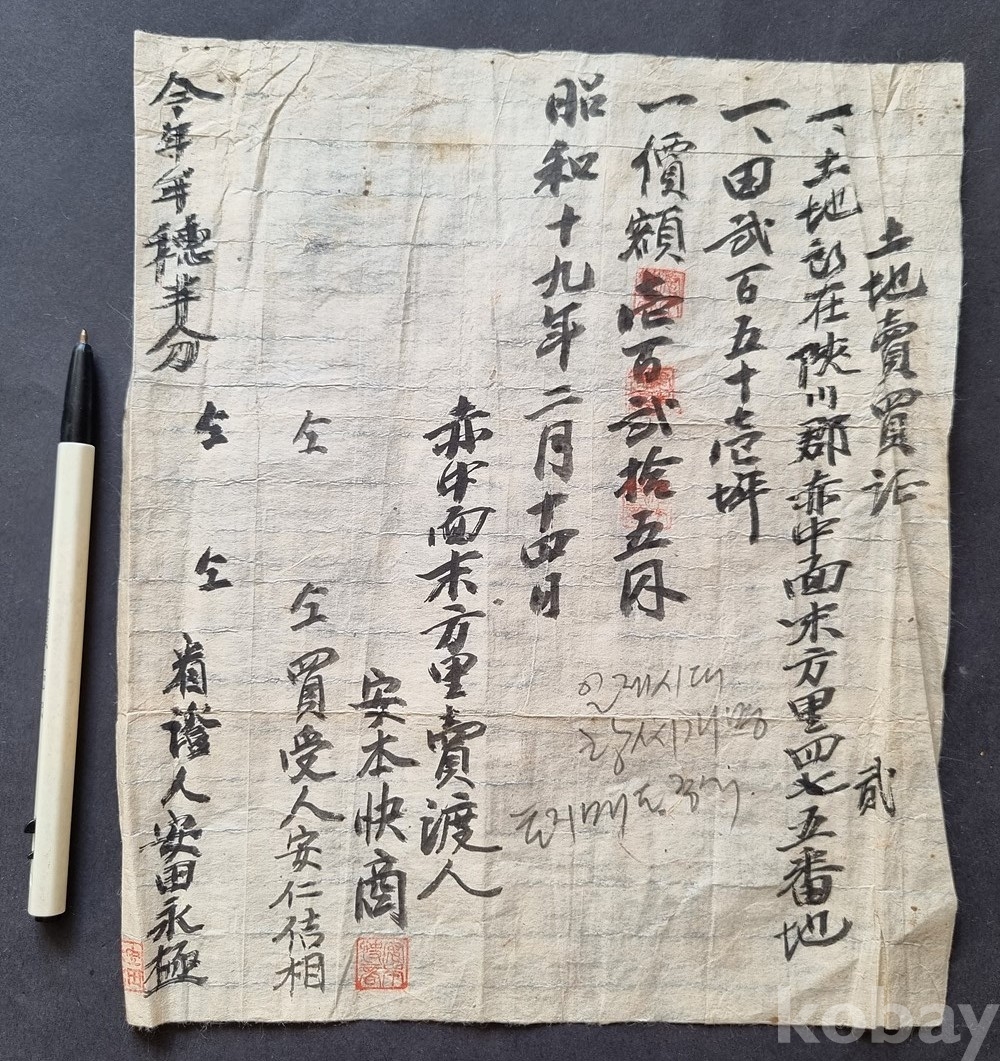 土地賣買証
一、土地所在陜川郡赤中面末方里四七五番地
貳
一、田貳百五十壱坪
一價額壱百貳拾五円
昭和十九年二月十四日
赤中面末方里賣渡人
安本快商
仝 仝 買受人安仁佶相
仝 仝 着證人安田永極
今年年穗半分
일제시대
토지매도증서
kobay